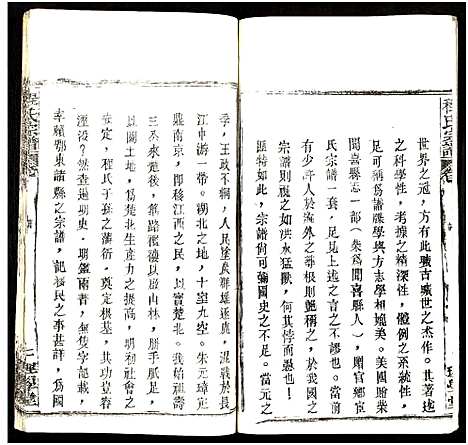 程氏宗譜
世界之冠，方有此曠古曠世之杰作。其著述
之科學性，考據之精深性，體例之系統性，
足可稱為譜牒學與方志學相媲美。美國贈柴
聞喜縣志一部（柴為聞喜縣人），贈官鄉宦
氏宗譜一套，足見上述之言不謬也。當今
有少許人於海外之尋根則艷稱之，於我國之
宗譜則視之如洪水猛獸，何其悖而愚也。不
寧唯特如此，宗譜尚可彌國史之。當元之
季，王政不綱，人民塗炭群雄逐鹿，混戰於長
江中游一帶。湖北之地，十室九空。朱元璋定
鼎南京，即移江西之民，以實楚北。我始祖宗
三丞來楚後，篳路襤褸以啟山林，胼手胝足
以關土地，為楚北生產力之提高，明初社會之
安定，程氏子孫之蕃衍，奠定根基，其功豈容
湮沒？然查遍明史、明鑑兩者，無隻字記載，
幸賴鄂東諸縣之宗譜，記移民之事甚詳，為國
程氏宗譜
理學堂